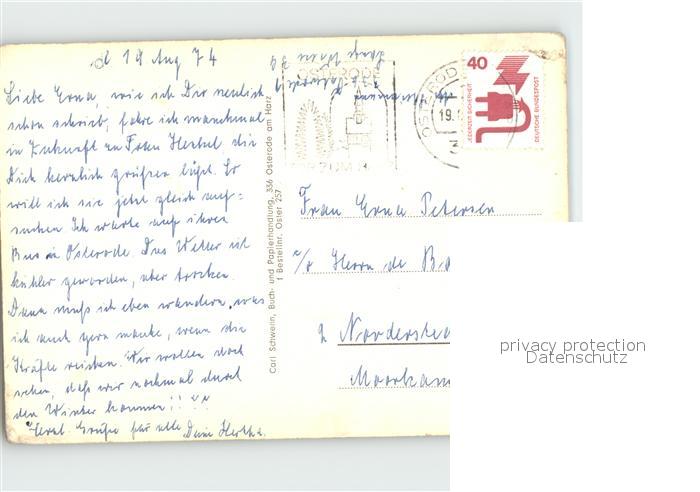 d 19 Aug 74
Liebe Erna, wie ich Dir neulich
schon schrieb, fahre ich manchmal
in Zukunft zu Frau Henkel die
Dich herzlich grüßen läßt. So
will ich sie jetzt gleich auf=
suchen. Ich warte auf ihren
Bus in Osterode. Das Wetter ist
kühler geworden, aber trocken.
Dann muß ich eben wandern, was
ich auch gern mache, wenn die
Kräfte reichen. Wir wollen doch
sehen, daß wir nochmal durch
den Winter kommen!!
Herzl. Grüße für alle Deine Hertha.
OSTERODE
ZUM
OSTEROD
19.
40
JEDERZEIT SICHERHEIT
DEUTSCHE BUNDESPOST
Carl Schwelin, Buch- und Papierhandlung, 336 Osterode am Harz
1 Bestellnr. Oster 257
Frau Erna Petersen
Herrn de B
2 Norderste
Moorkam
privacy protection
Datenschutz